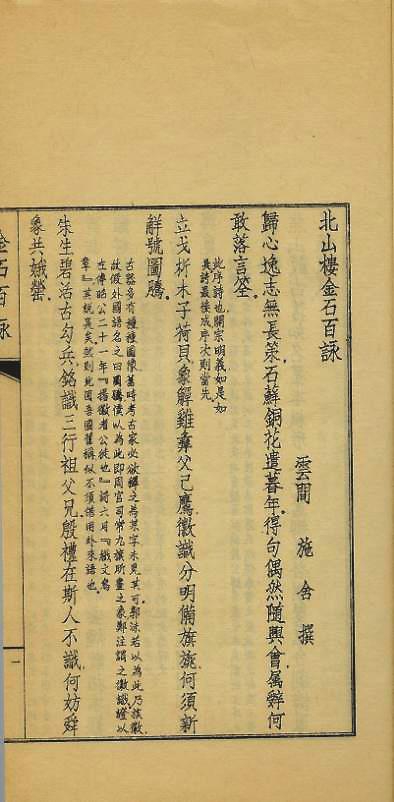 北山樓金石百詠
雲間 施舍 撰
歸心逸志無長策。石蘚銅花遣暮年。得句偶然隨興會。屬辭何
敢落言筌。
此序詩也。開宗明義如是如
是。詩最後成。序次則當先。
立戈析木子荷貝。象解雞彝父己鷹。徽識分明備旗旐。何須新
辭號圖騰。
古器多有種種圖像。舊時考古家必欲釋之為某字。未見其可。郭沫若以為此乃族徽。
故假外國語名之曰圖騰。僕以為此即周官司常九旗所畫之象。鄭注謂之徽識。證以
左傳昭公二十一年『揚徽者公徒也』。詩六月『織文鳥
章』。其說是矣。然則此固吾國舊稱。似不須借用外來語也。
朱生碧活古勾兵。銘識三行祖父兄。殷禮在斯人不識。何妨舜
象共娥㷀。
金石百詠
一